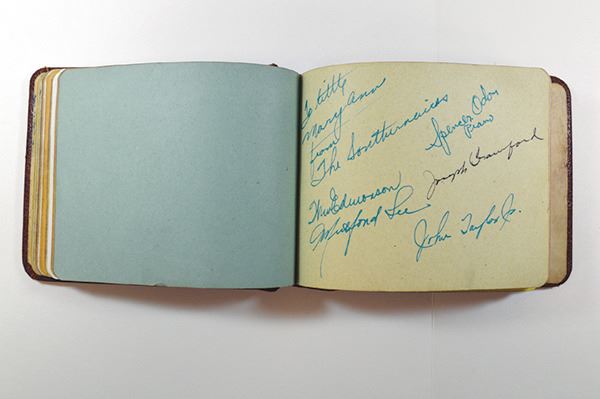 To little
Mary Ann
From
The Southernaires
Spencer Odom
Piano
Wm Edmonson
Joseph Crawford
Lee
John Taylor Jr.